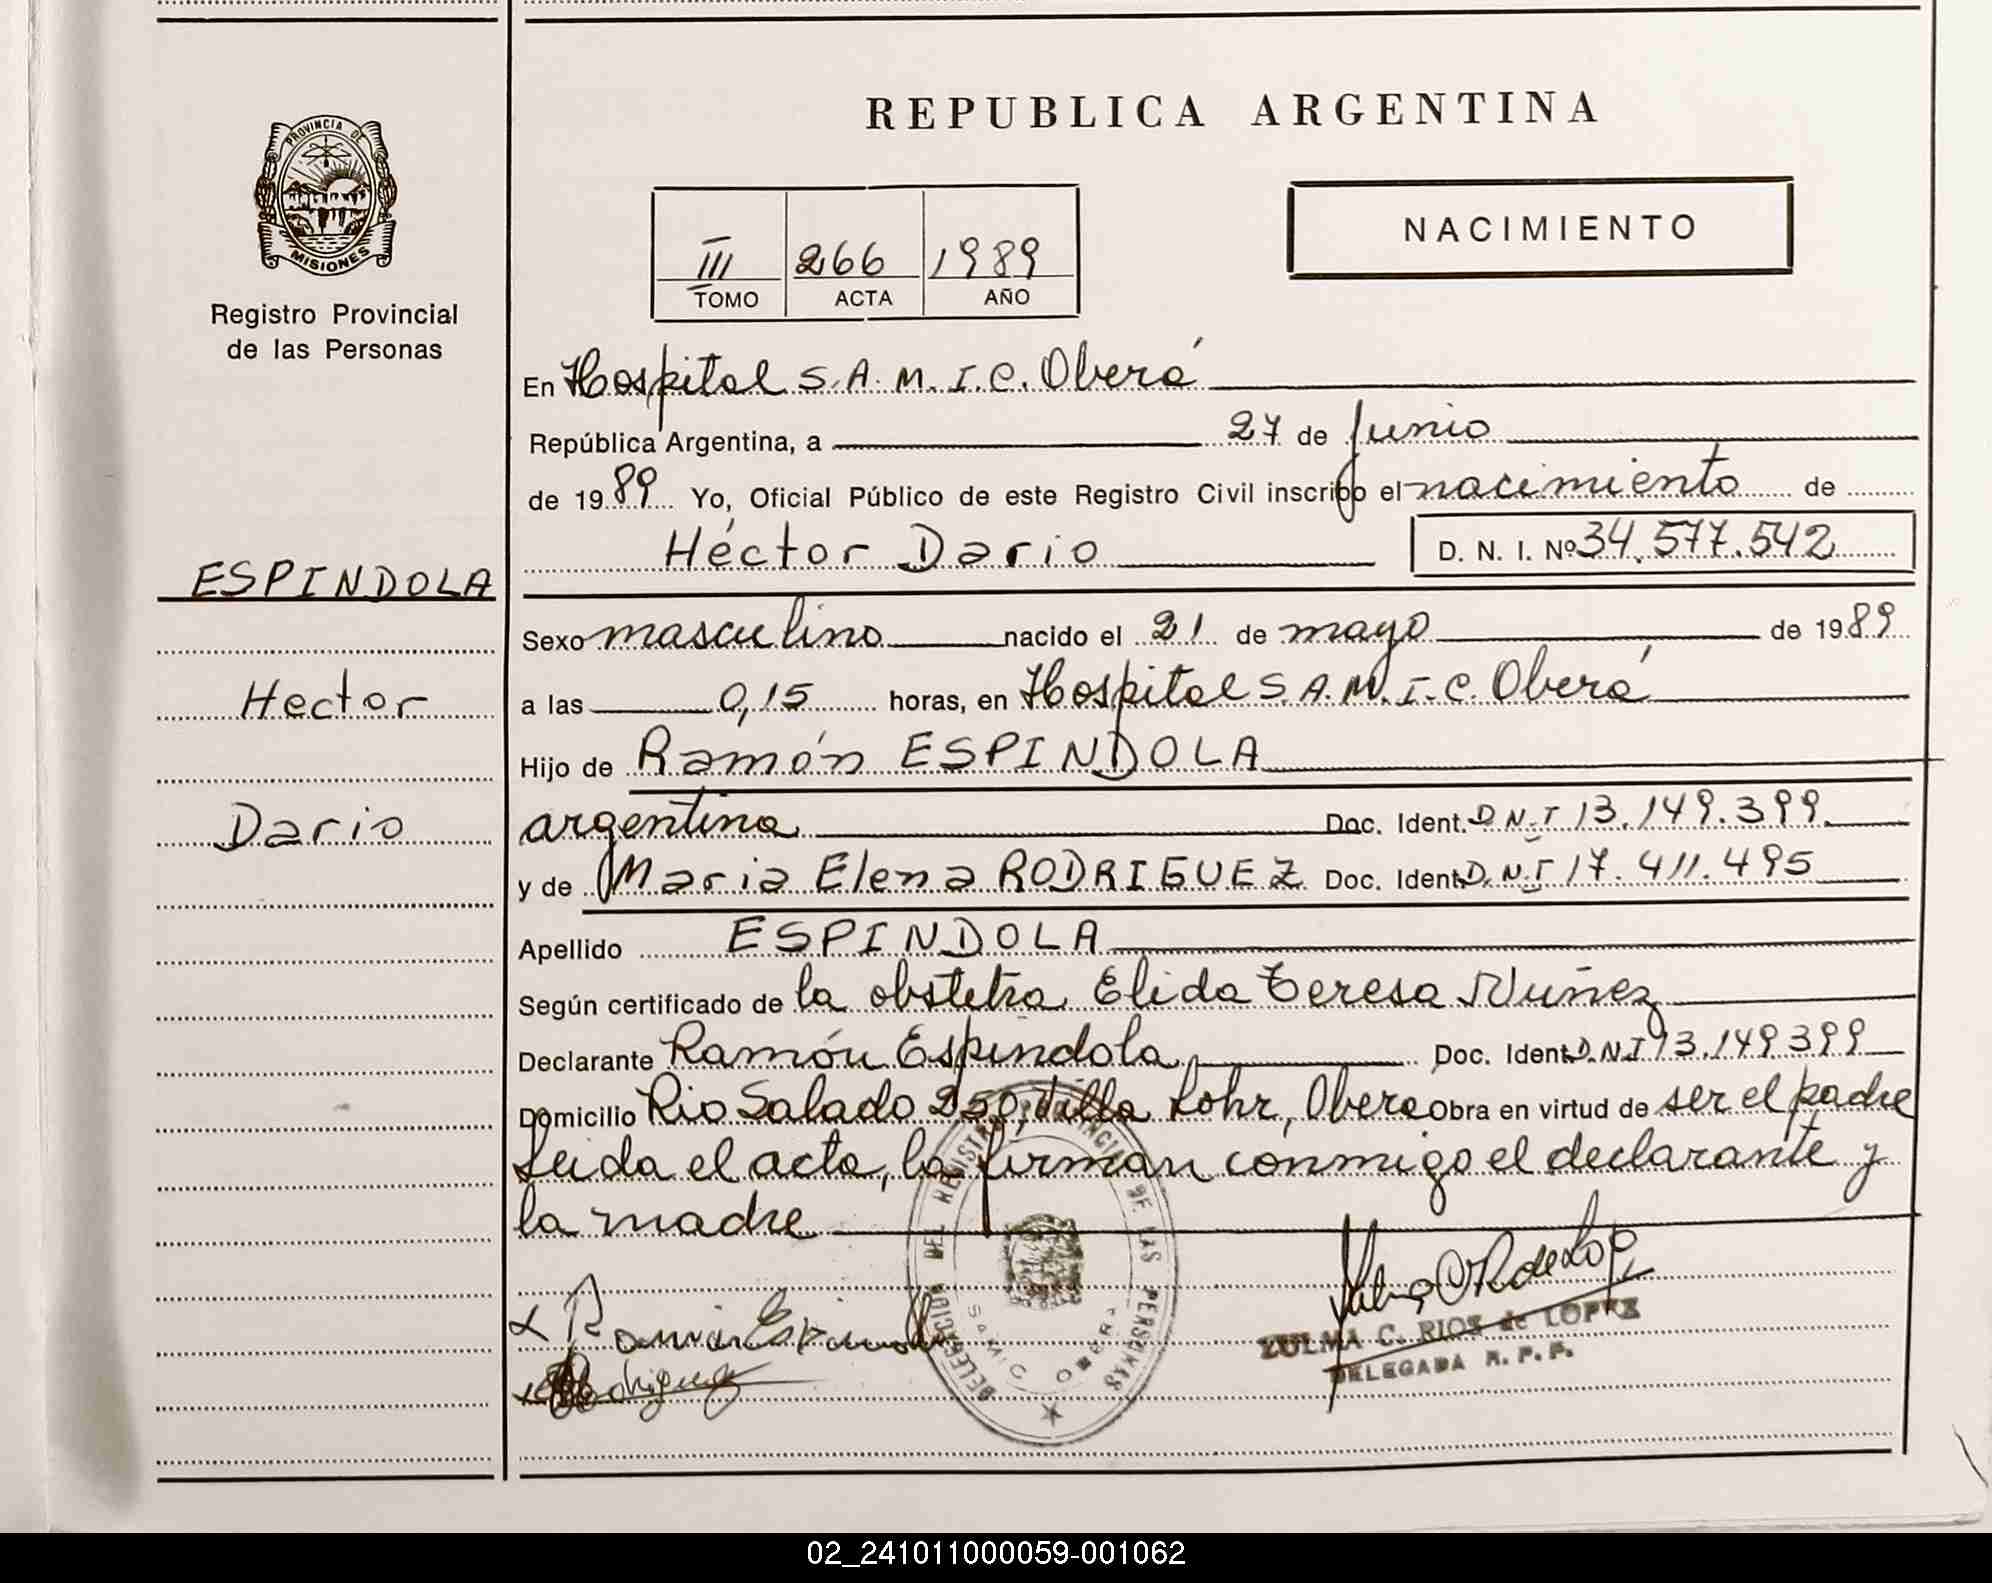 REPUBLICA ARGENTINA
PROVINCIA DE
MISIONES
Registro Provincial
de las Personas
III 266 1989
TOMO ACTA AÑO
NACIMIENTO
En Hospital S.A.M.I.C. Oberá
República Argentina, a 27 de Junio
de 1989 Yo, Oficial Público de este Registro Civil inscribo el nacimiento de
Héctor Dario D. N. I. Nº 34.577.542
ESPINDOLA
Hector
Dario
Sexo masculino nacido el 21 de mayo de 1989
a las 0,15 horas, en Hospital S.A.M.I.C. Oberá
Hijo de Ramón ESPINDOLA
argentina Doc. Ident. D.N.I 13.149.399.
y de Maria Elena RODRIGUEZ Doc. Ident. D.N.I 17.411.495
Apellido ESPINDOLA
Según certificado de la obstetra Elida Teresa Nuñez
Declarante Ramón Espindola Doc. Ident. D.N.I 13.149399
Domicilio Rio Salado 250, Villa Lohr, Obera Obra en virtud de ser el padre
Leida el acta, la firman conmigo el declarante y
la madre
DELEGACION DEL REGISTRO PROVINCIAL DE LAS PERSONAS
SAMIC OBERA
Ramón Espindola
Rodriguez
ZULMA C. RIOS de LOPEZ
DELEGADA R. P. P.
02_241011000059-001062